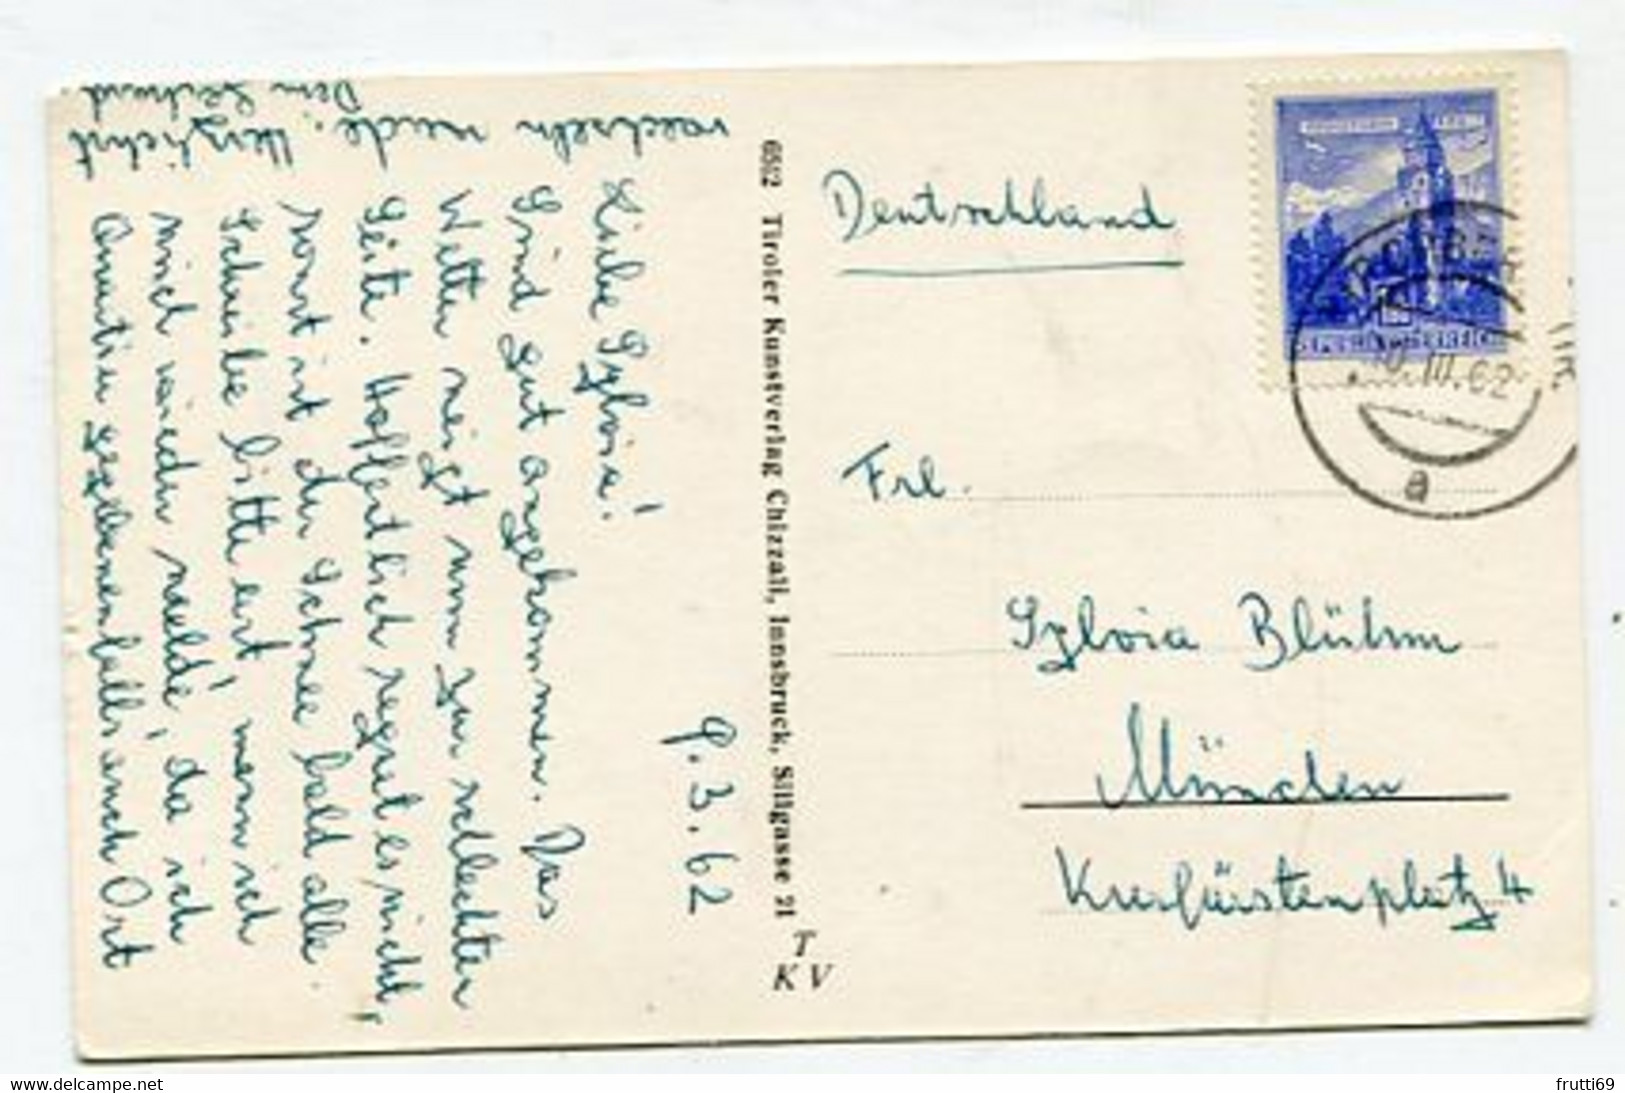 9.3.62
Liebe Sylvia!
Sind gut angekommen. Das
Wetter neigt nun zur schlechten
Seite. Hoffentlich regnet es nicht,
sonst ist der Schnee bald alle.
Schreibe bitte erst, wenn ich
mich wieder melde, da ich
Quartier gegebenenfalls auch Ort
wechseln werde. Herzlichst
Dein
6582 Tiroler Kunstverlag Chizzali, Innsbruck, Sillgasse 21
T
K V
Deutschland
Frl.
Sylvia Blühm
München
Kurfürstenplatz 4
10.III.62
a
delcampe.net
frutti69